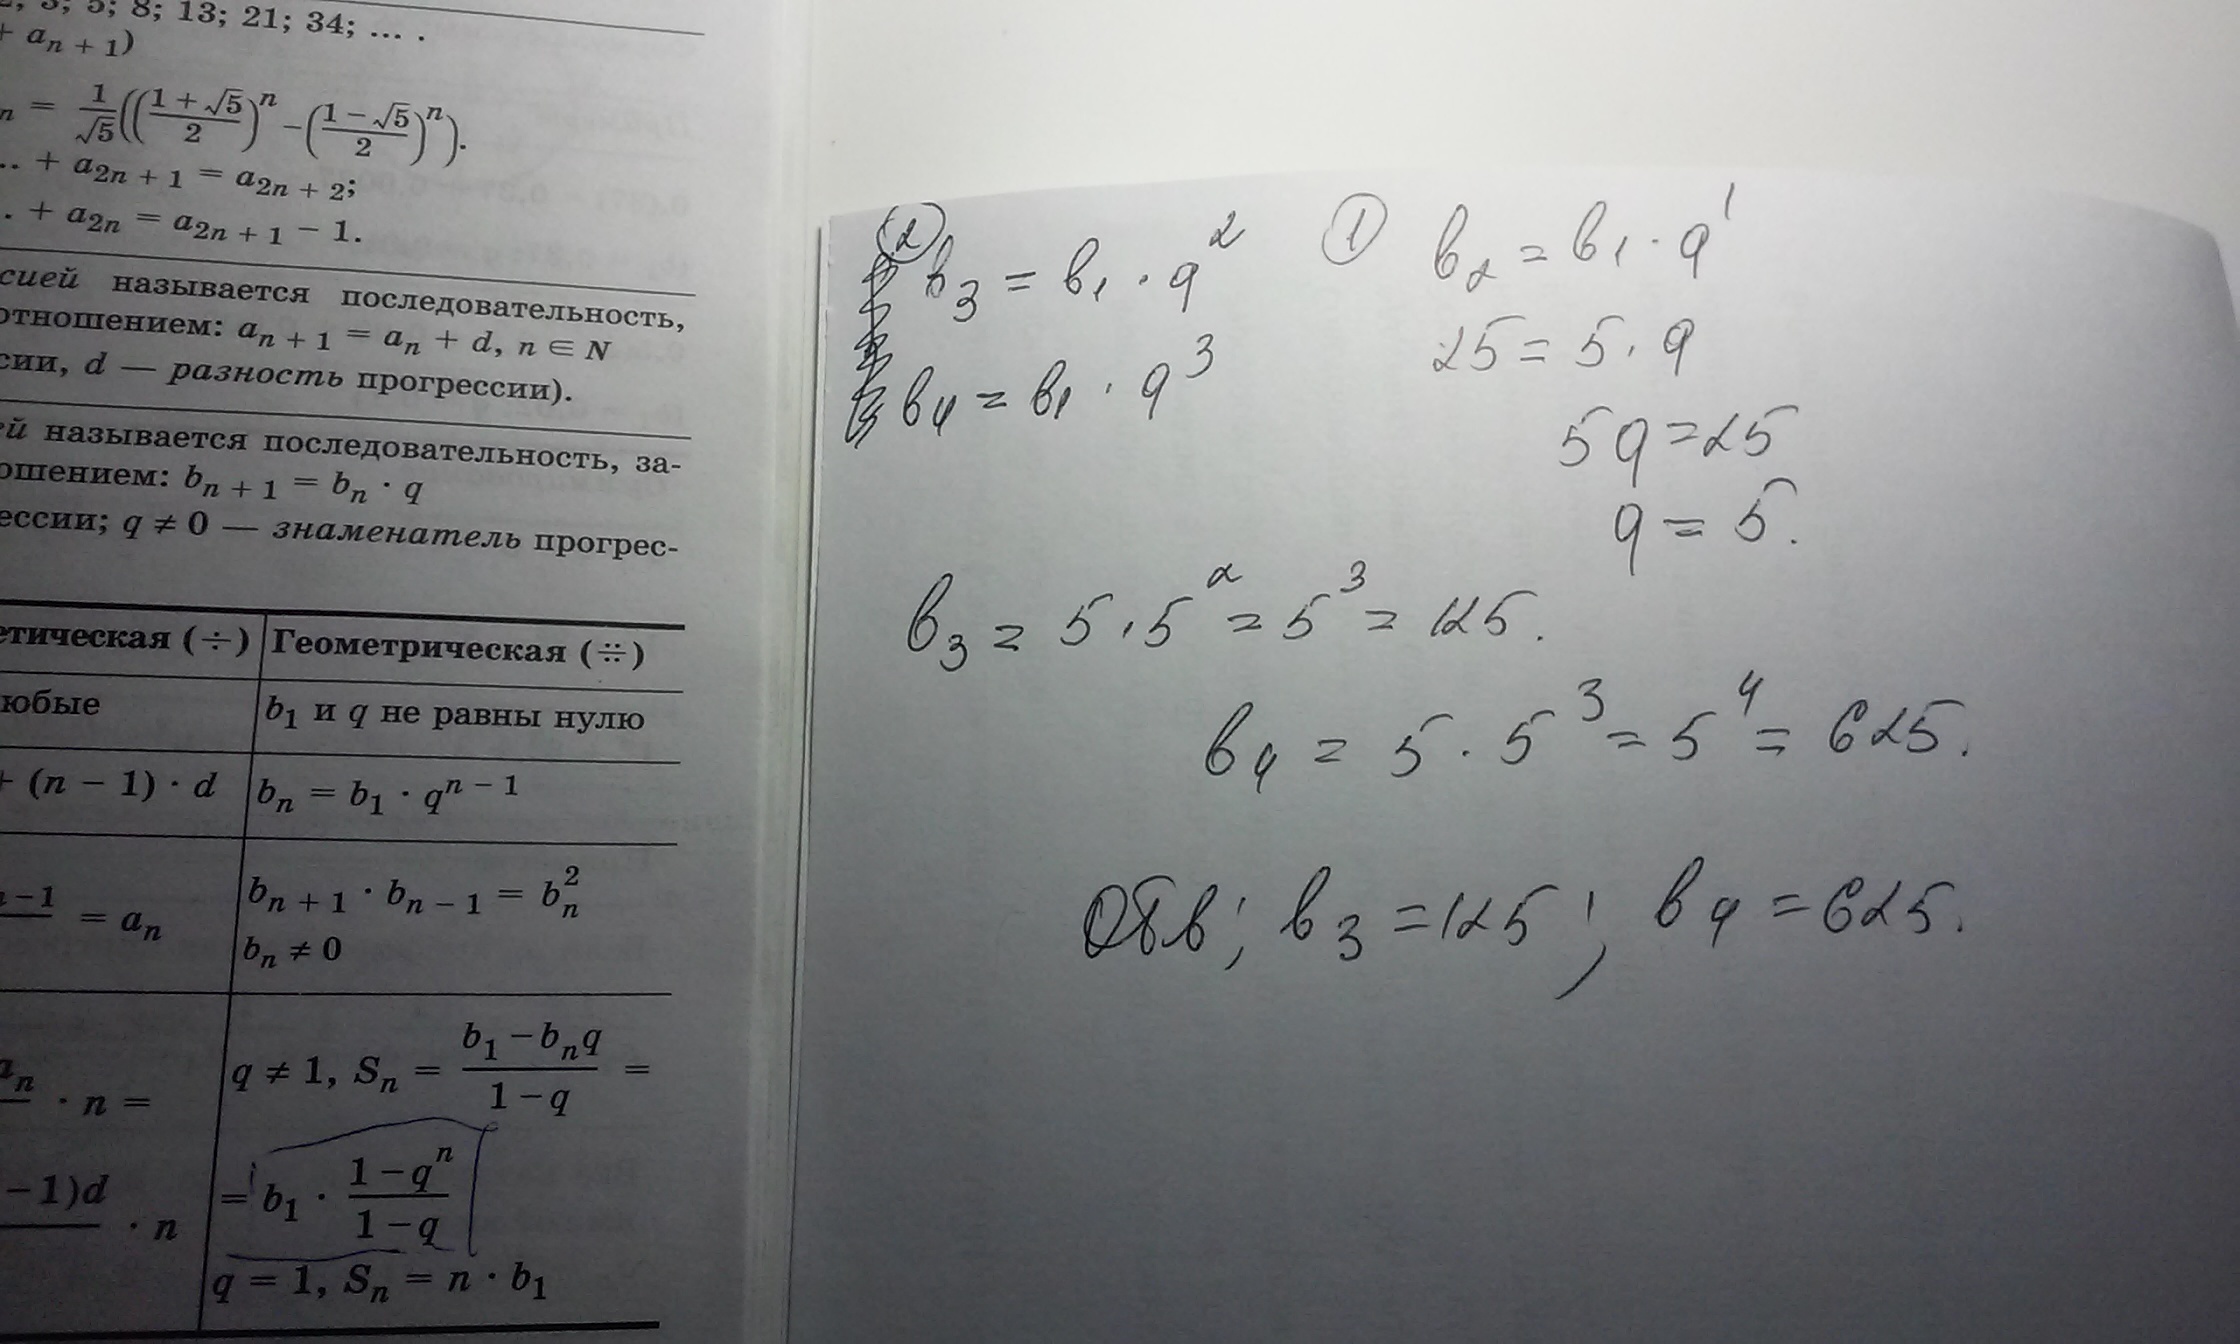 3; 5; 8; 13; 21; 34; ... .
+ aₙ₊₁)
ₙ = 1/√5 (((1 + √5)/2)ⁿ − ((1 − √5)/2)ⁿ).
.. + a₂ₙ₊₁ = a₂ₙ₊₂;
. + a₂ₙ = a₂ₙ₊₁ − 1.
сией называется последовательность,
отношением: aₙ₊₁ = aₙ + d, n ∈ N
сии, d — разность прогрессии).
ей называется последовательность, за-
ошением: bₙ₊₁ = bₙ · q
ессии; q ≠ 0 — знаменатель прогрес-
етическая (÷) Геометрическая (∺)
юбые b₁ и q не равны нулю
+ (n − 1) · d bₙ = b₁ · qⁿ⁻¹
ₙ₋₁ = aₙ bₙ₊₁ · bₙ₋₁ = bₙ²
bₙ ≠ 0
aₙ · n = q ≠ 1, Sₙ = (b₁ − bₙq)/(1 − q) =
− 1)d · n = b₁ · (1 − qⁿ)/(1 − q)
q = 1, Sₙ = n · b₁
② в₃ = в₁ · q²
в₄ = в₁ · q³
① в₂ = в₁ · q¹
25 = 5 · q
5q = 25
q = 5.
в₃ = 5 · 5² = 5³ = 125.
в₄ = 5 · 5³ = 5⁴ = 625.
Отв; в₃ = 125; в₄ = 625.